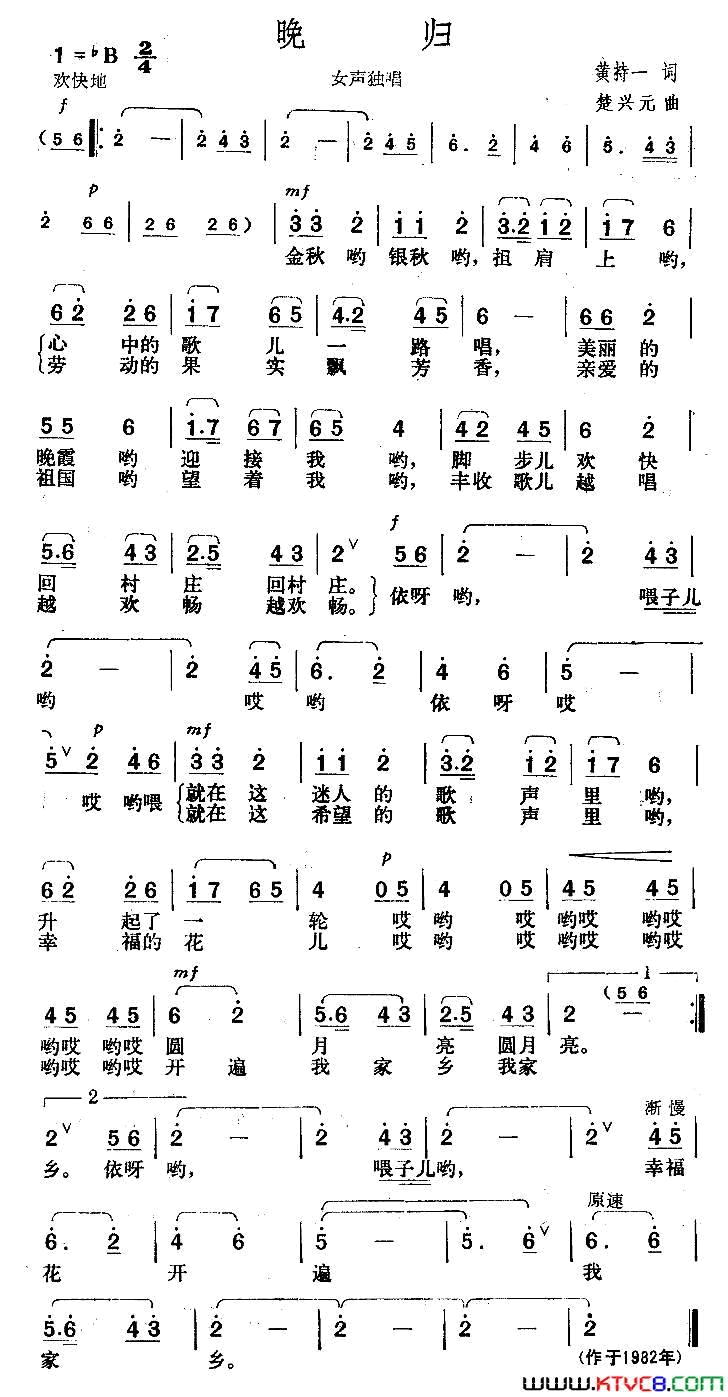 晚 归
1=♭B 2/4
欢快地
女声独唱
黄持一 词
楚兴元 曲
f
(5 6 ‖: 2 — | 2 4 3 | 2 — | 2 4 5 | 6. 2 | 4 6 | 5. 4 3 |
p mf
2 6 6 | 2 6 2 6) | 3 3 2 | 1 1 2 | 3.2 1 2 | 1 7 6 |
金秋 哟 银秋 哟, 担 肩 上 哟,
6 2 2 6 | 1 7 6 5 | 4.2 4 5 | 6 — | 6 6 2 |
心 中的 歌 儿 一 路 唱, 美丽 的
劳 动的 果 实 飘 芳 香, 亲爱 的
5 5 6 | 1.7 6 7 | 6 5 4 | 4 2 4 5 | 6 2 |
晚霞 哟 迎 接 我 哟, 脚 步儿 欢 快
祖国 哟 望 着 我 哟, 丰收 歌儿 越 唱
f
5.6 4 3 | 2.5 4 3 | 2 ∨ 5 6 | 2 — | 2 4 3 |
回 村 庄 回村 庄。 依呀 哟, 喂子儿
越 欢 畅 越欢 畅。
2 — | 2 4 5 | 6. 2 | 4 6 | 5 — |
哟 哎 哟 依 呀 哎
p mf
5 ∨ 2 4 6 | 3 3 2 | 1 1 2 | 3.2 1 2 | 1 7 6 |
哎 哟喂 就在 这 迷人 的 歌 声 里 哟,
就在 这 希望 的 歌 声 里 哟,
p
6 2 2 6 | 1 7 6 5 | 4 0 5 | 4 0 5 | 4 5 4 5 |
升 起了 一 轮 哎 哟 哎 哟哎 哟哎
幸 福的 花 儿 哎 哟 哎 哟哎 哟哎
mf 1 (5 6
4 5 4 5 | 6 2 | 5.6 4 3 | 2.5 4 3 | 2 — :‖
哟哎 哟哎 圆 月 亮 圆月 亮。
哟哎 哟哎 开 遍 我 家 乡 我家
2 渐 慢
2 ∨ 5 6 | 2 — | 2 4 3 | 2 — | 2 ∨ 4 5 |
乡。 依呀 哟, 喂子儿 哟, 幸福
原速
6. 2 | 4 6 | 5 — | 5. 6 ∨ | 6. 6 |
花 开 遍 我
5.6 4 3 | 2 — | 2 — | 2 — | 2 — ‖
家 乡。
(作于1982年)
www.KTVC8.com